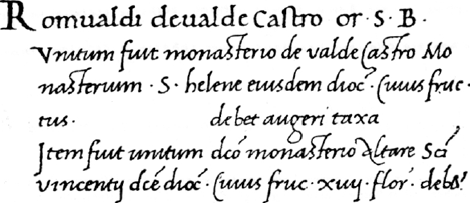 Romualdi de valde Castro or · S · B ·
Vnitum fuit monasterio de valde Castro Mo
nasterium · S · helene eiusdem dioc̄ · Cuius fruc ·
tus · debet augeri taxa
Item fuit unitum dc̄o monasterio Altare Sc̄i
vincentij dc̄e dioc̄ · Cuius fruc · xvij · flor̄ · deb&